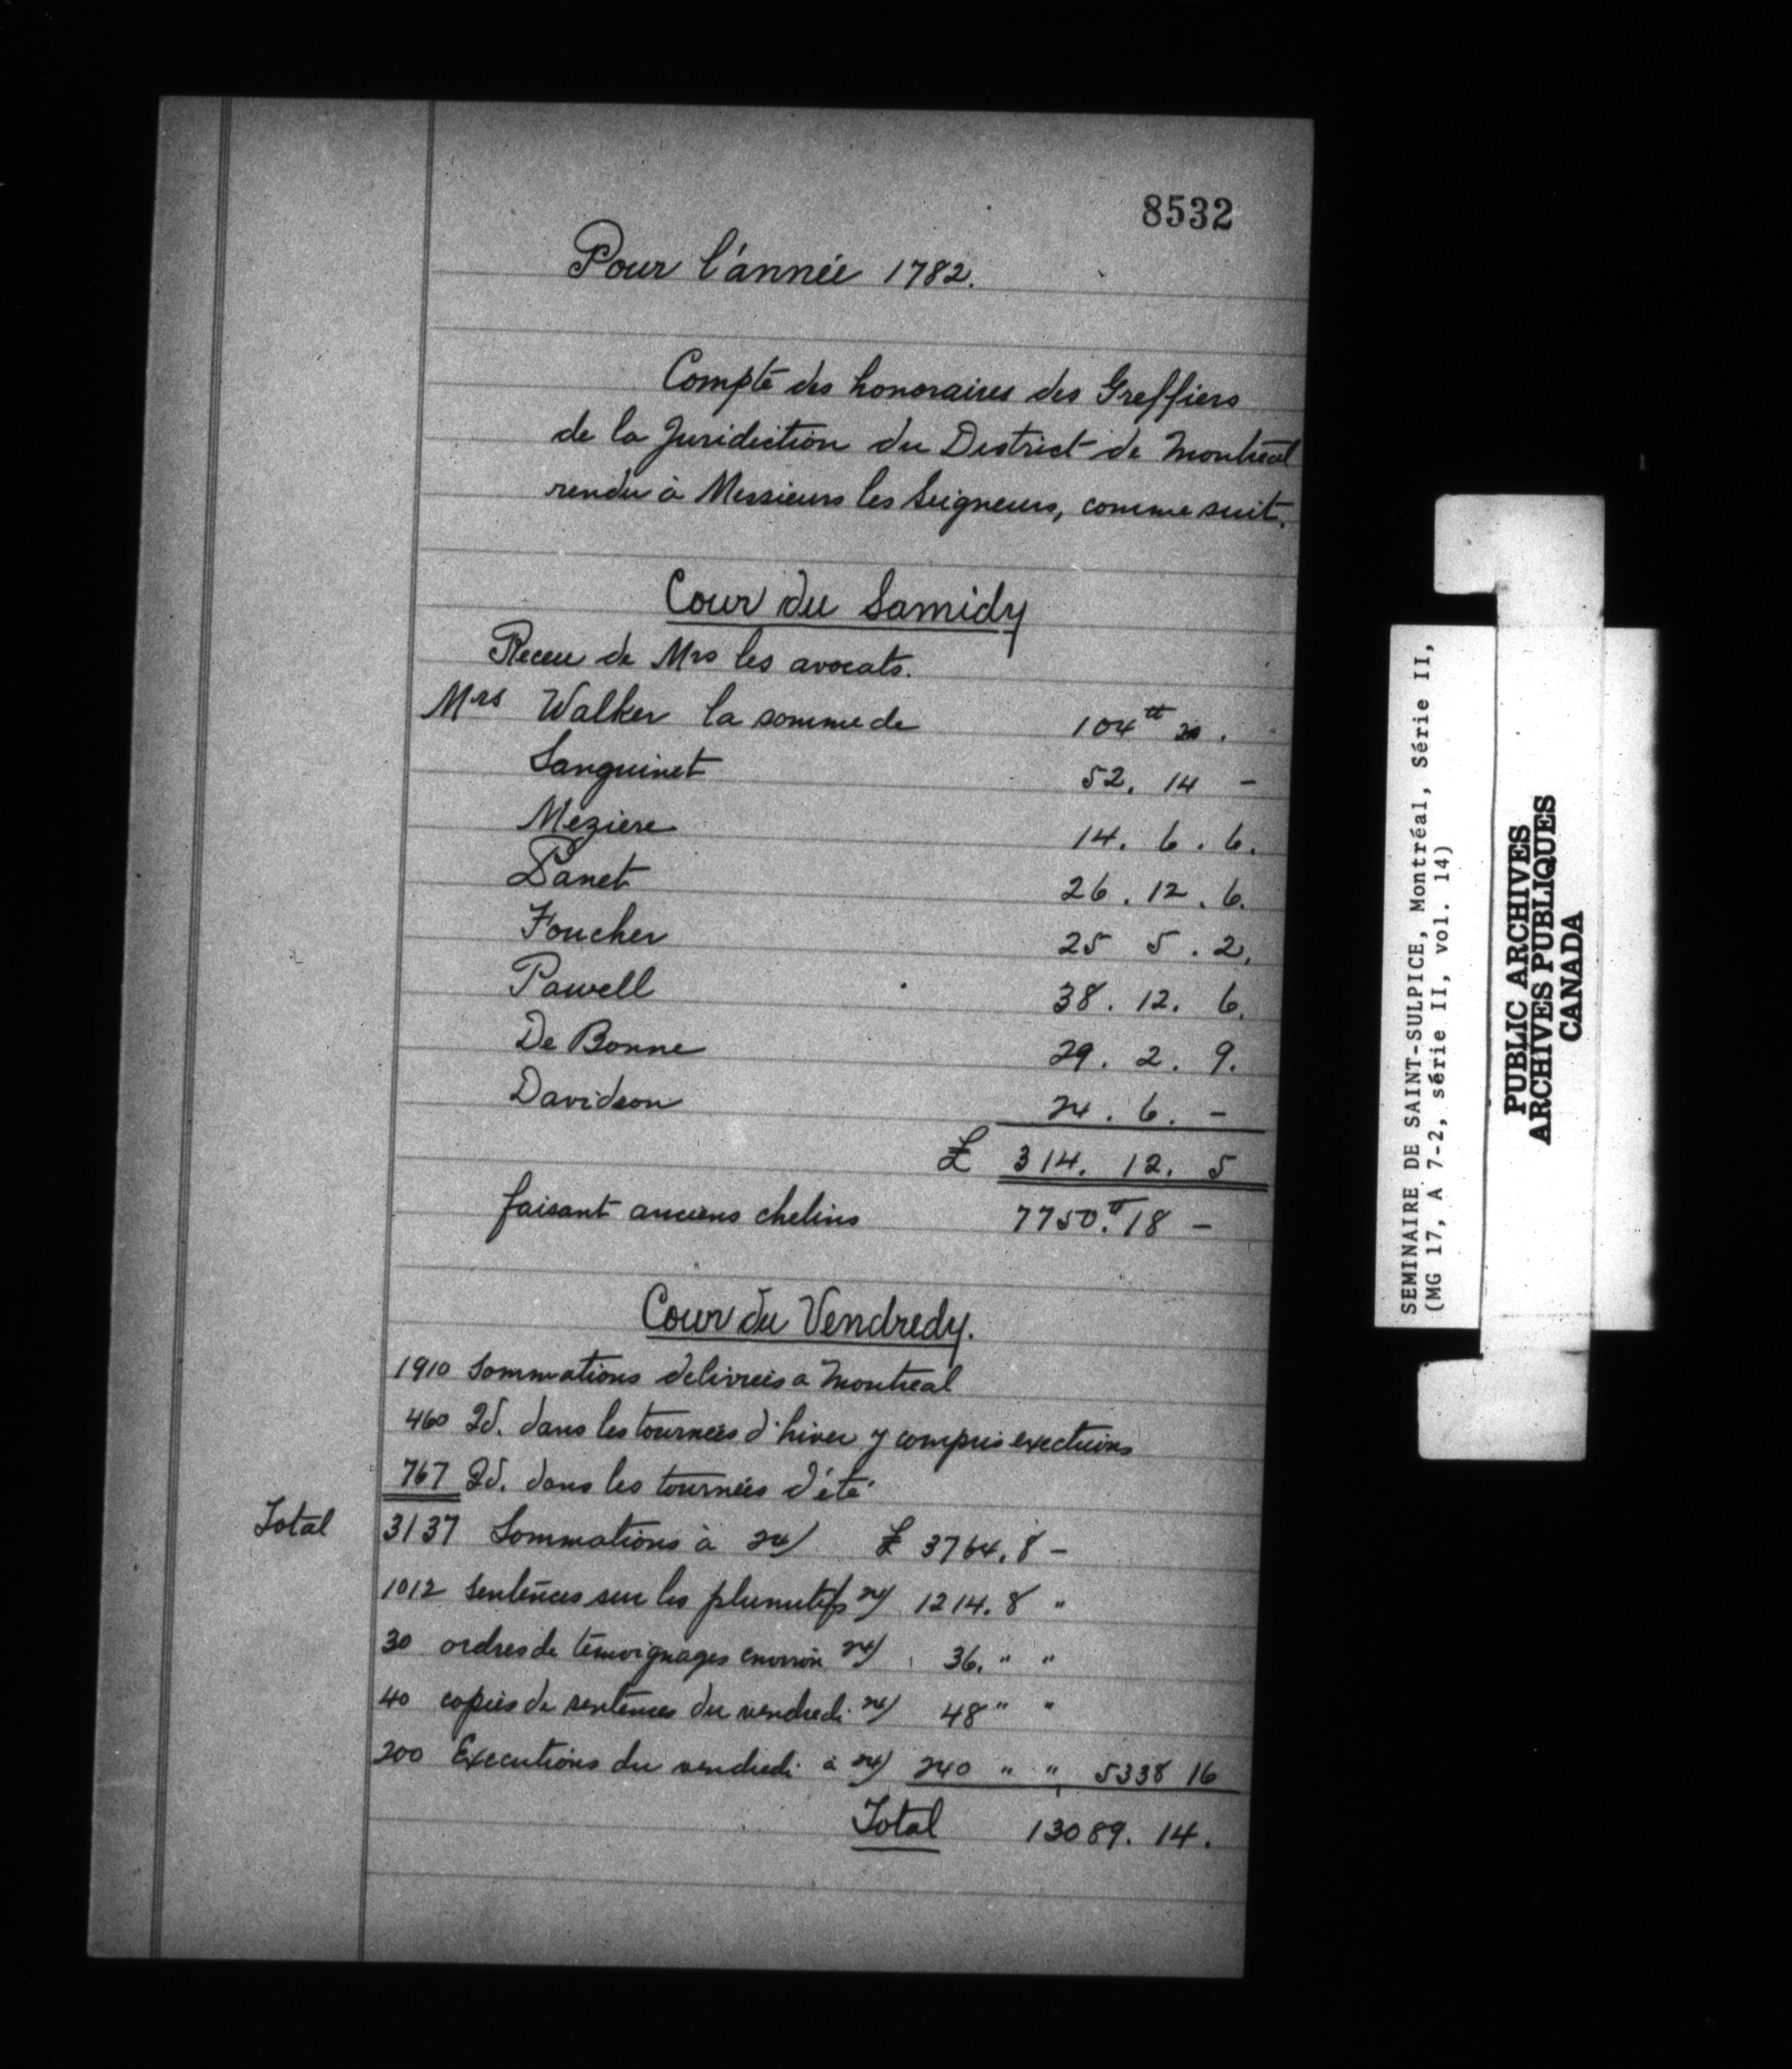 8532
Pour l'année 1782.
Compte des honoraires des Greffiers
de la Juridiction du District de Montréal
rendu à Messieurs les Seigneurs, comme suit.
Cour du Samidy
Receu de Mrs les avocats.
Mrs Walker la somme de 104tt .
Sanguinet 52. 14 -
Meziere 14. 6. 6.
Panet 26. 12. 6.
Foucher 25 5. 2.
Powell 38. 12. 6.
De Bonne 29. 2. 9.
Davidson 24. 6. -
£ 314. 12. 5
faisant anciens chelins 7750.tt 18 -
Cour du Vendredy.
1910 Sommations delivrées a Montreal
460 Id. dans les tournées d'hiver y compris exectuions
767 Id. dans les tournées d'été
Total 3137 Sommations à 24/ £ 3764. 8 -
1012 Sentences sur les plumitifs 24/ 1214. 8 "
30 ordres de témoignages environ 24/ 36. " "
40 copies de sentences du vendredi 24/ 48 " "
200 Executions du vendredi à 24/ 240 " " 5338 16
Total 13089. 14.
SEMINAIRE DE SAINT-SULPICE, Montréal, Série II,
(MG 17, A 7-2, série II, vol. 14)
PUBLIC ARCHIVES
ARCHIVES PUBLIQUES
CANADA